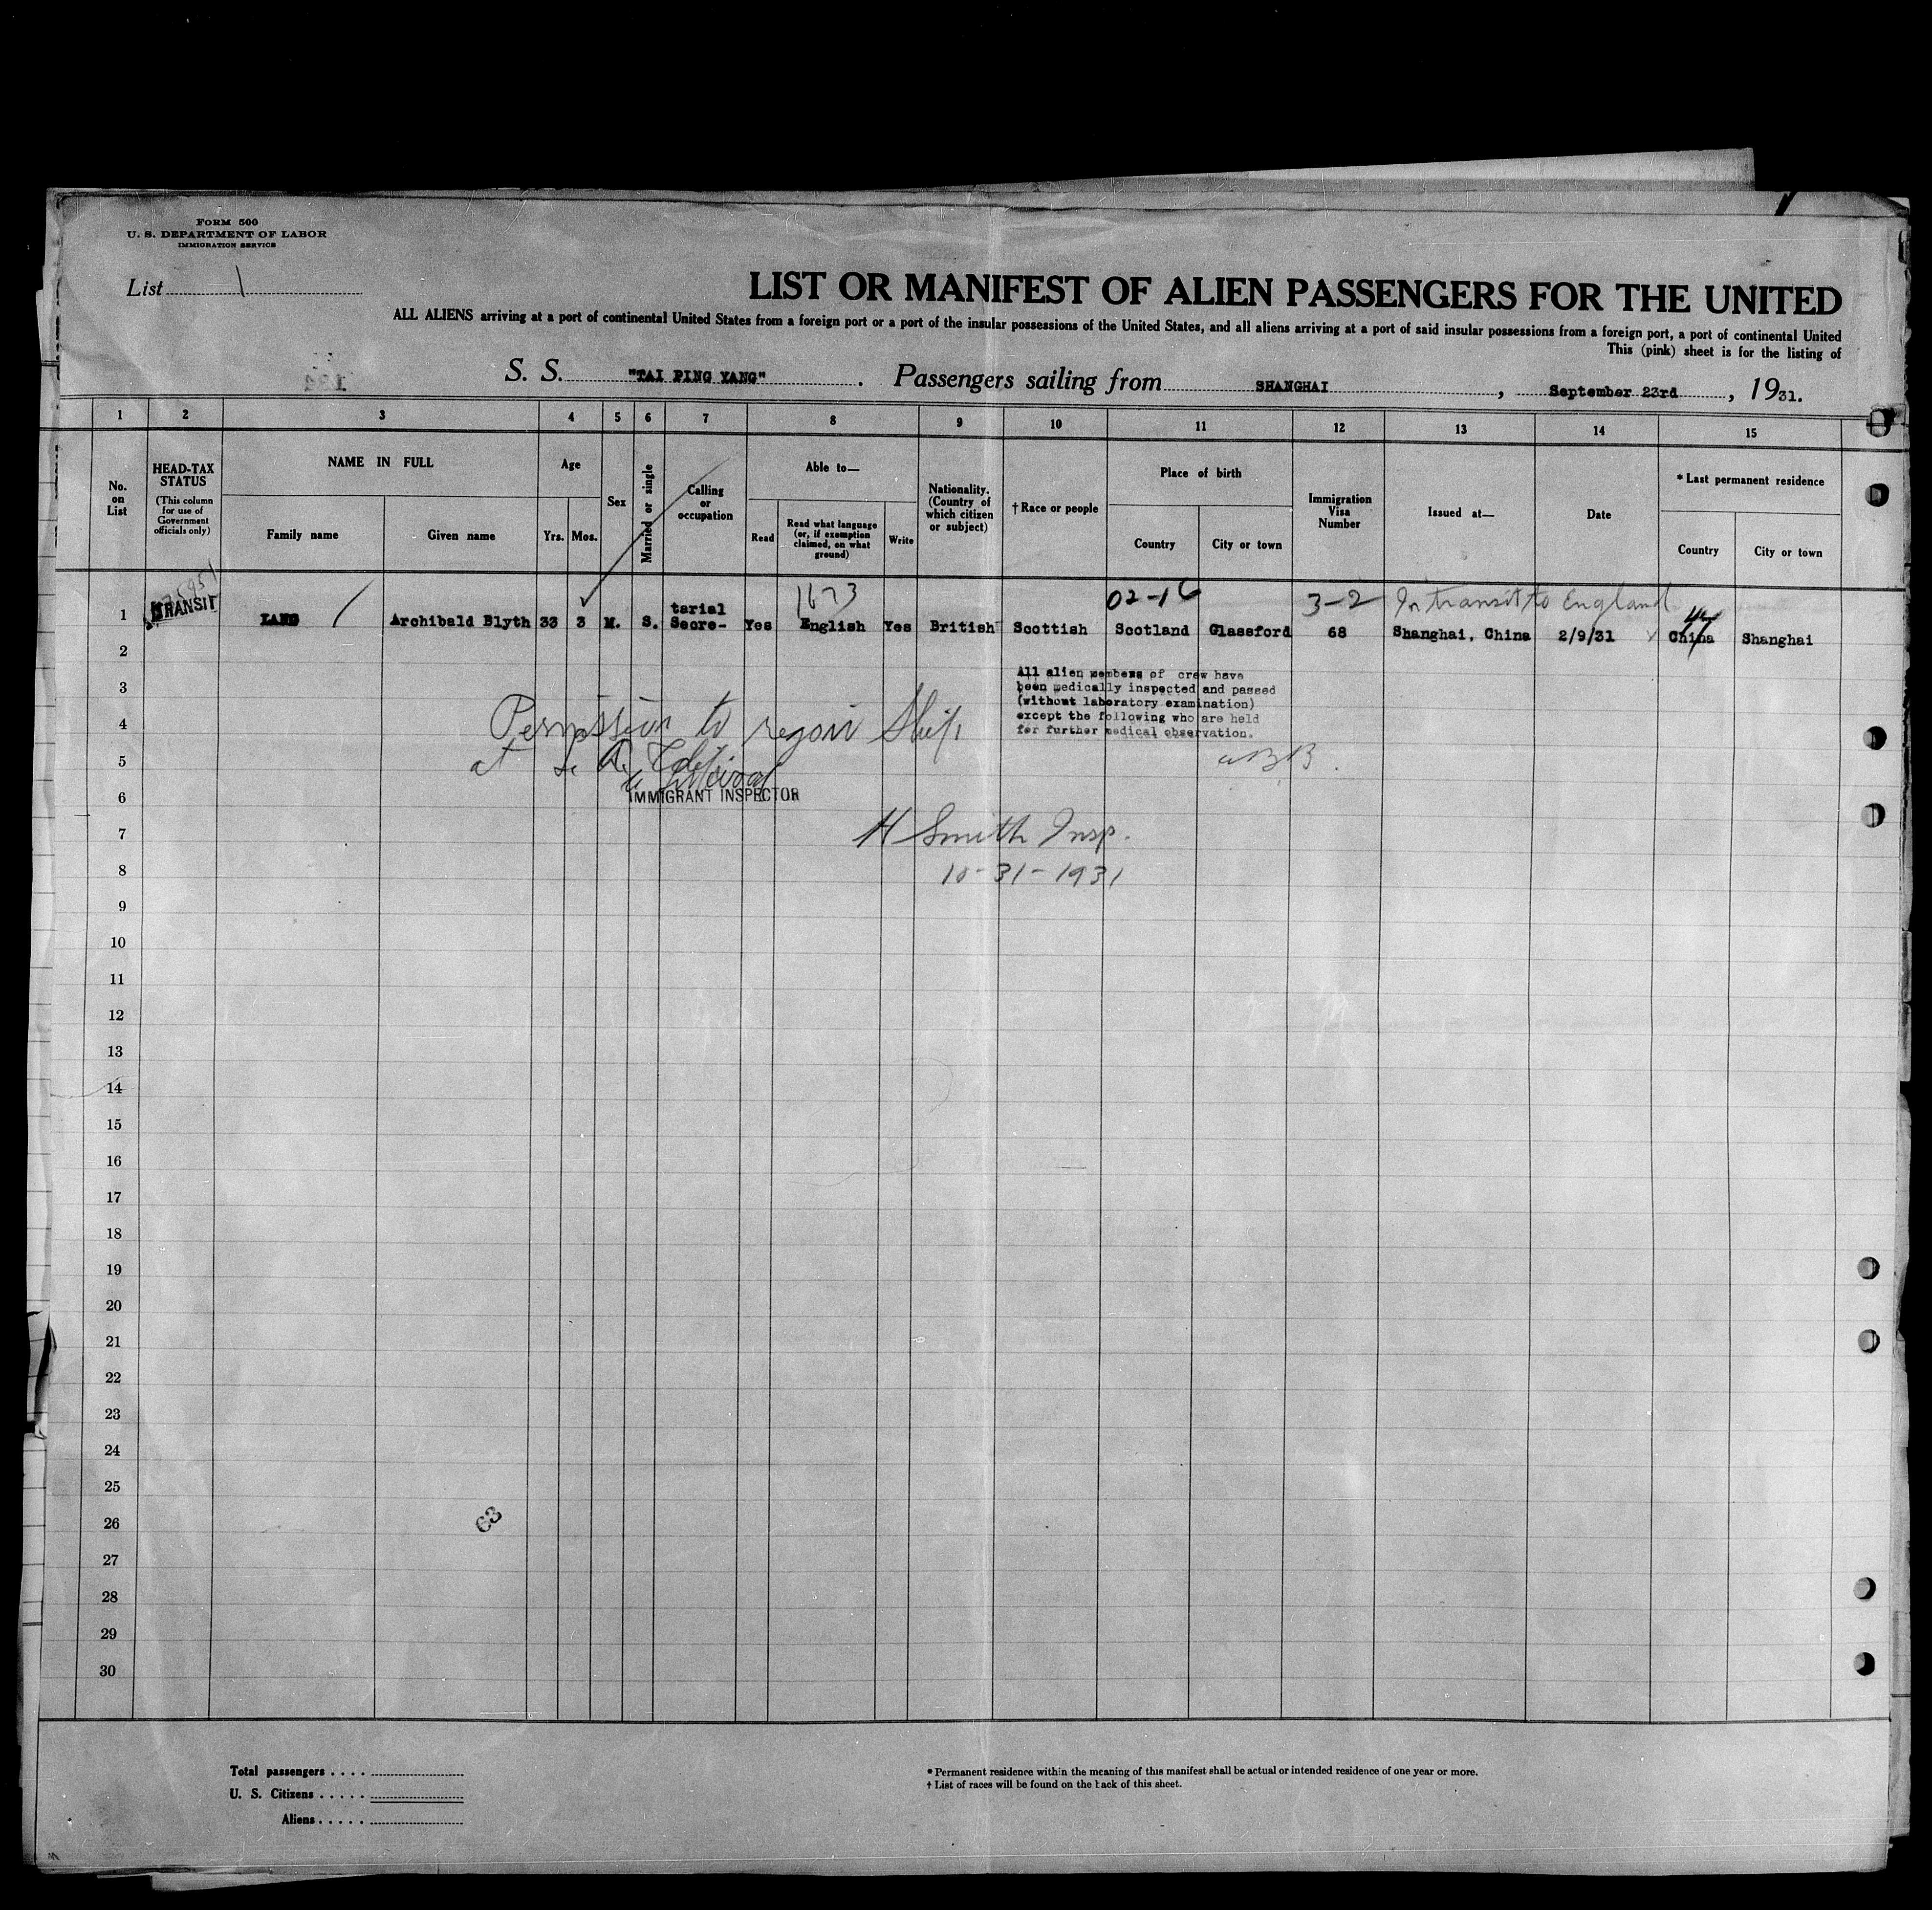 FORM 500
U. S. DEPARTMENT OF LABOR
IMMIGRATION SERVICE
List 1
LIST OR MANIFEST OF ALIEN PASSENGERS FOR THE UNITED
ALL ALIENS arriving at a port of continental United States from a foreign port or a port of the insular possessions of the United States, and all aliens arriving at a port of said insular possessions from a foreign port, a port of continental United
This (pink) sheet is for the listing of
S. S. "TAI PING YANG". Passengers sailing from SHANGHAI, September 23rd, 1931.
1 2 3 4 5 6 7 8 9 10 11 12 13 14 15
No. on List
HEAD-TAX STATUS
(This column for use of Government officials only)
NAME IN FULL
Family name
Given name
Age
Yrs. Mos.
Sex
Married or single
Calling or occupation
Able to—
Read
Read what language (or, if exemption claimed, on what ground)
Write
Nationality. (Country of which citizen or subject)
† Race or people
Place of birth
Country
City or town
Immigration Visa Number
Issued at—
Date
* Last permanent residence
Country
City or town
1673 02-16 3-2 In transit to England 44
1 TRANSIT LANG Archibald Blyth 33 3 M. S. tarial Secre- Yes English Yes British Scottish Scotland Glassford 68 Shanghai, China 2/9/31 China Shanghai
2
All alien members of crew have
been medically inspected and passed
(without laboratory examination)
except the following who are held
for further medical observation.
3
4
Permission to rejoin Ship
at
5
6
IMMIGRANT INSPECTOR
7
H Smith Insp.
8
10-31-1931
9
10
11
12
13
14
15
16
17
18
19
20
21
22
23
24
25
26
63
27
28
29
30
Total passengers . . . .
U. S. Citizens . . . . .
Aliens . . . . .
* Permanent residence within the meaning of this manifest shall be actual or intended residence of one year or more.
† List of races will be found on the back of this sheet.